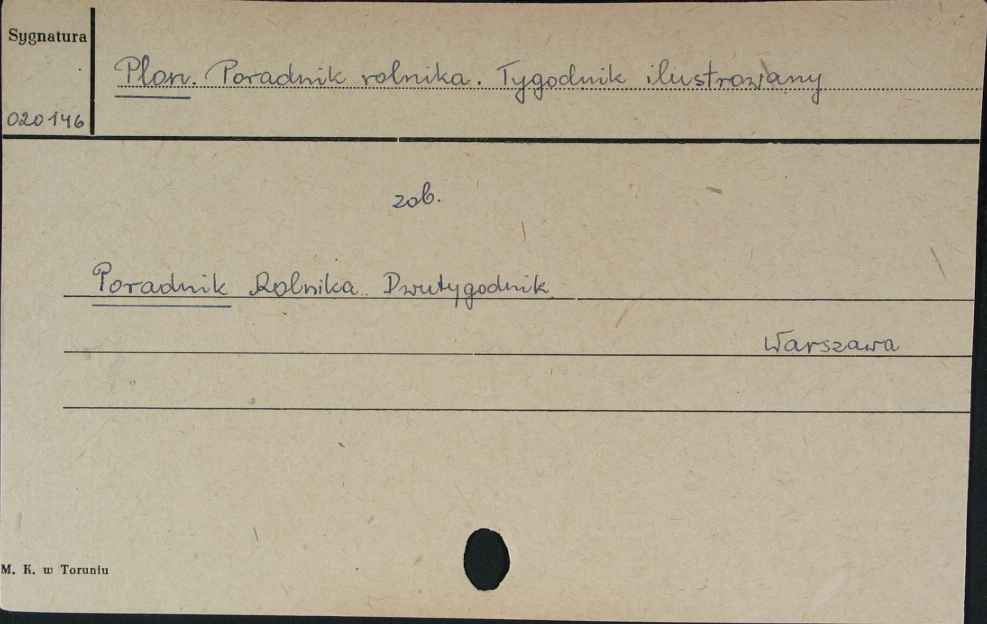 Sygnatura
Plon. Poradnik rolnika. Tygodnik ilustrowany
020146
zob.
Poradnik Rolnika. Dwutygodnik
Warszawa
M. K. w Toruniu